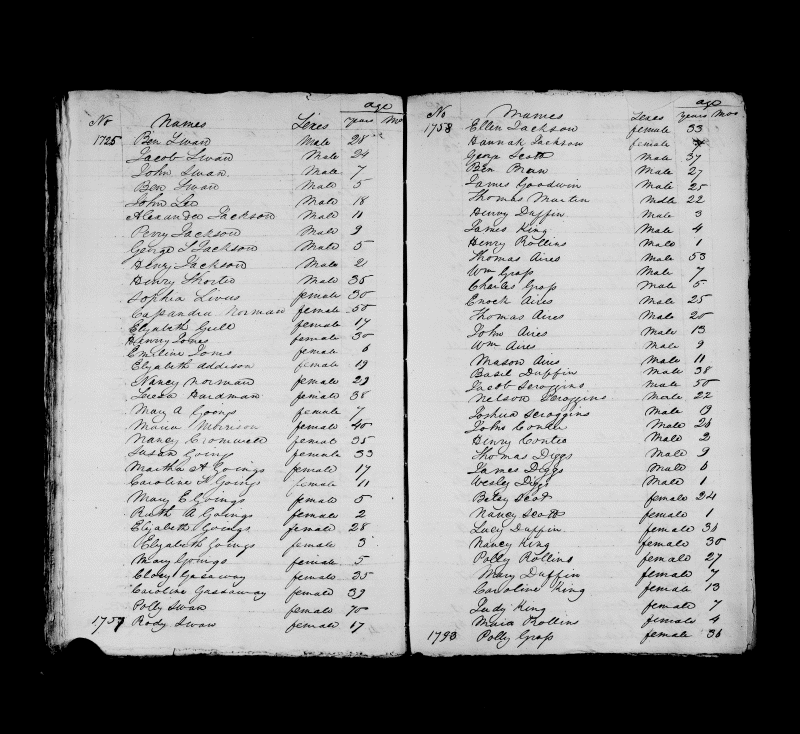 age
No Names Sexes years Mo
1725 Ben Swan Male 28
Jacob Swan Male 24
John Swan Male 7
Ben Swan Male 5
John Lee Male 18
Alexander Jackson Male 11
Perry Jackson Male 9
George S Jackson Male 5
Henry Jackson Male 2
Henry Male 35
Sophia female 30
Cassandra Norman female 50
Elizabeth female 17
Henny Jones female 30
Emeline Jones female 6
Elizabeth Addison female 19
Nancy Norman female 29
Hardman female 38
Mary A Goings female 7
Maria Morrison female 40
Nancy Cromwell female 35
Susan Going female 33
Martha A Goings female 17
Caroline A Goings female 11
Mary E Goings female 5
Ruth A Goings female 2
Elizabeth Goings female 28
Elizabeth Goings female 3
Mary Goings female 5
Cloey Gasaway female 35
Caroline Gassaway female 39
Polly Swan female 70
1757 Rody Swan female 17
age
No Names Sexes years Mos
1758 Ellen Jackson female 33
Hannah Jackson female
George Scott Male 37
Ben Male 27
James Goodwin Male 25
Thomas Martin Male 22
Henry Duffin Male 3
James King Male 4
Henry Rollins Male 1
Thomas Aires Male 53
Wm Grass Male 7
Charles Grass Male 5
Enoch Aires Male 25
Thomas Aires Male 20
John Aires Male 13
Wm Aires Male 9
Mason Aires Male 11
Basil Duffin Male 38
Jacob Scroggins Male 50
Nelson Scroggins Male 22
Joshua Scroggins Male 19
John Contee Male 26
Henry Contee Male 2
Thomas Diggs Male 9
James Diggs Male 6
Wesley Diggs Male 1
Betsy Scott female 24
Nancy Scott female 1
Lucy Duffin female 36
Nancy King female 30
Polly Rollins female 27
Mary Duffin female 7
Caroline King female 13
Judy King female 7
Maria Rollins female 4
1793 Polly Grass female 36